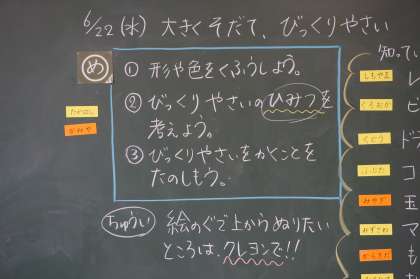 6/22(水) 大きくそだて、びっくりやさい
め
① 形や色をくふうしよう。
② びっくりやさいのひみつを
考えよう。
③ びっくりやさいをかくことを
たのしもう。
ちゅうい 絵のぐで上からぬりたい
ところは、クレヨンで!!
知ってい
ピ
ドウ
コ
玉
ア
も